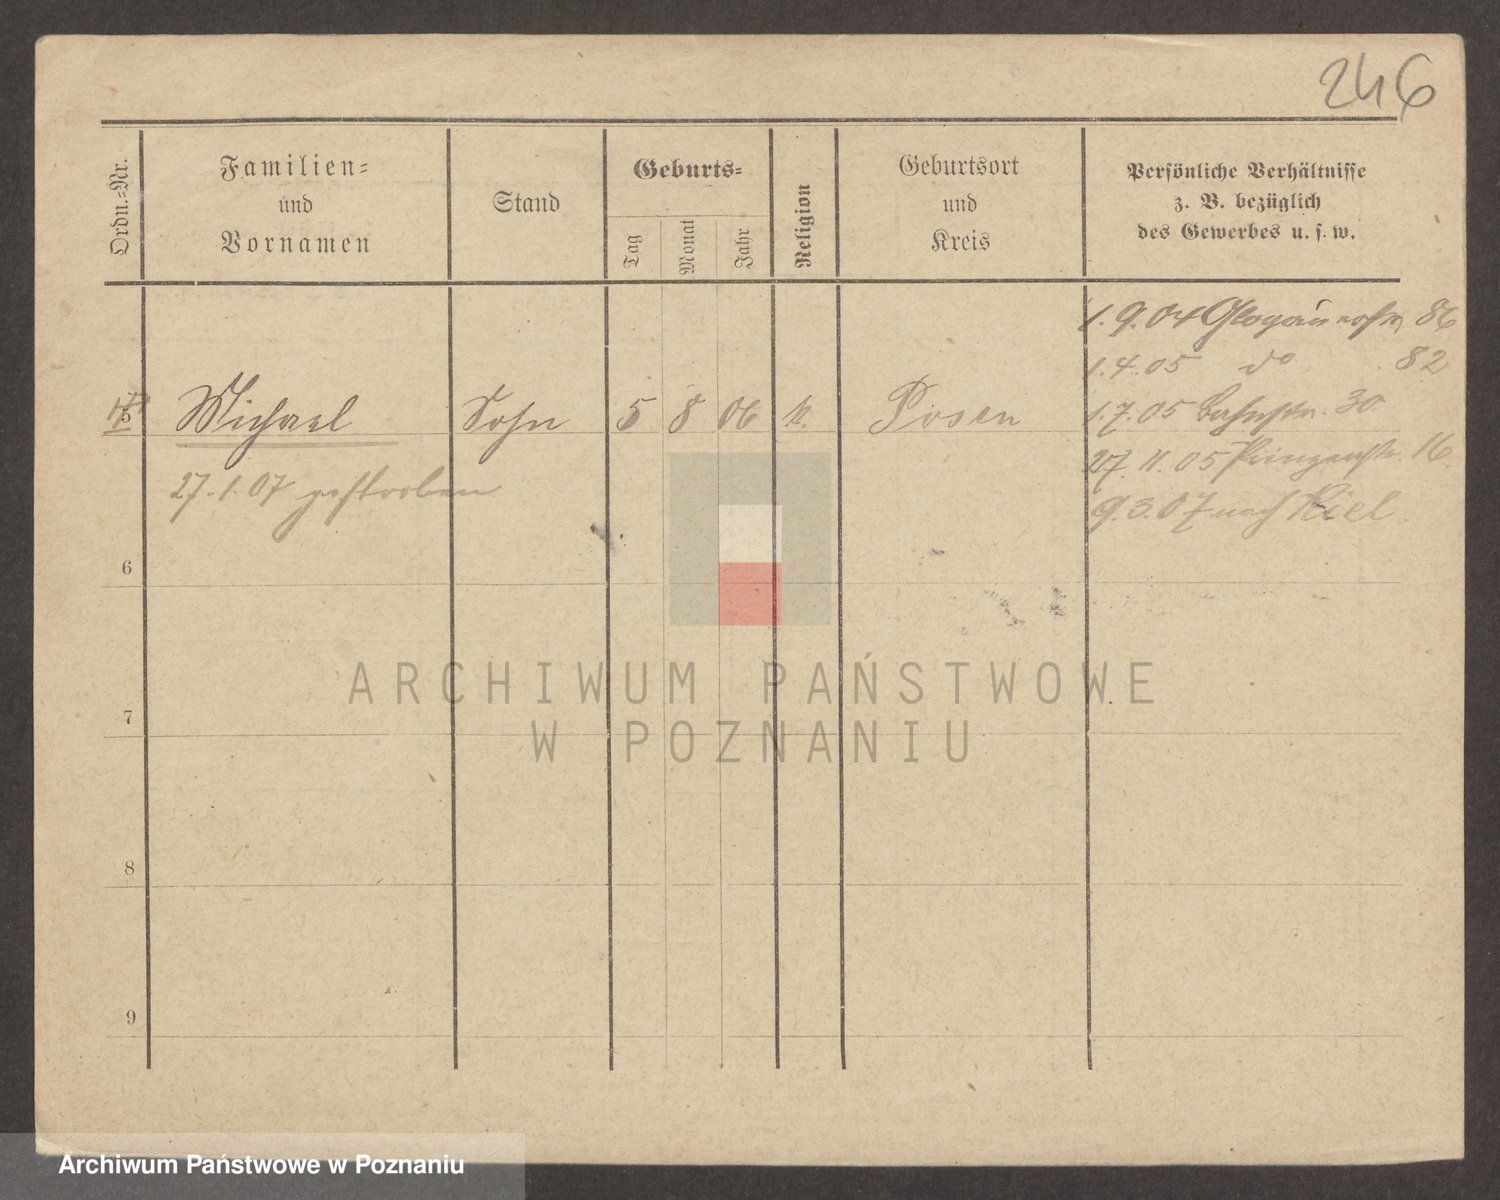 246
Ordn.-Nr.
Familien-
und
Vornamen
Stand
Geburts-
Tag
Monat
Jahr
Religion
Geburtsort
und
Kreis
Persönliche Verhältnisse
z. B. bezüglich
des Gewerbes u. s. w.
1.9.04 Glogauerstr 86
1.4.05 do 82
5 Michael Sohn 5 8 06 k. Posen 1.7.05 Bahnstr. 30
27.1.07 gestorben 27.11.05 Prinzenstr. 16
9.3.07 nach Kiel
6
7
8
9
ARCHIWUM PAŃSTWOWE
W POZNANIU
Archiwum Państwowe w Poznaniu